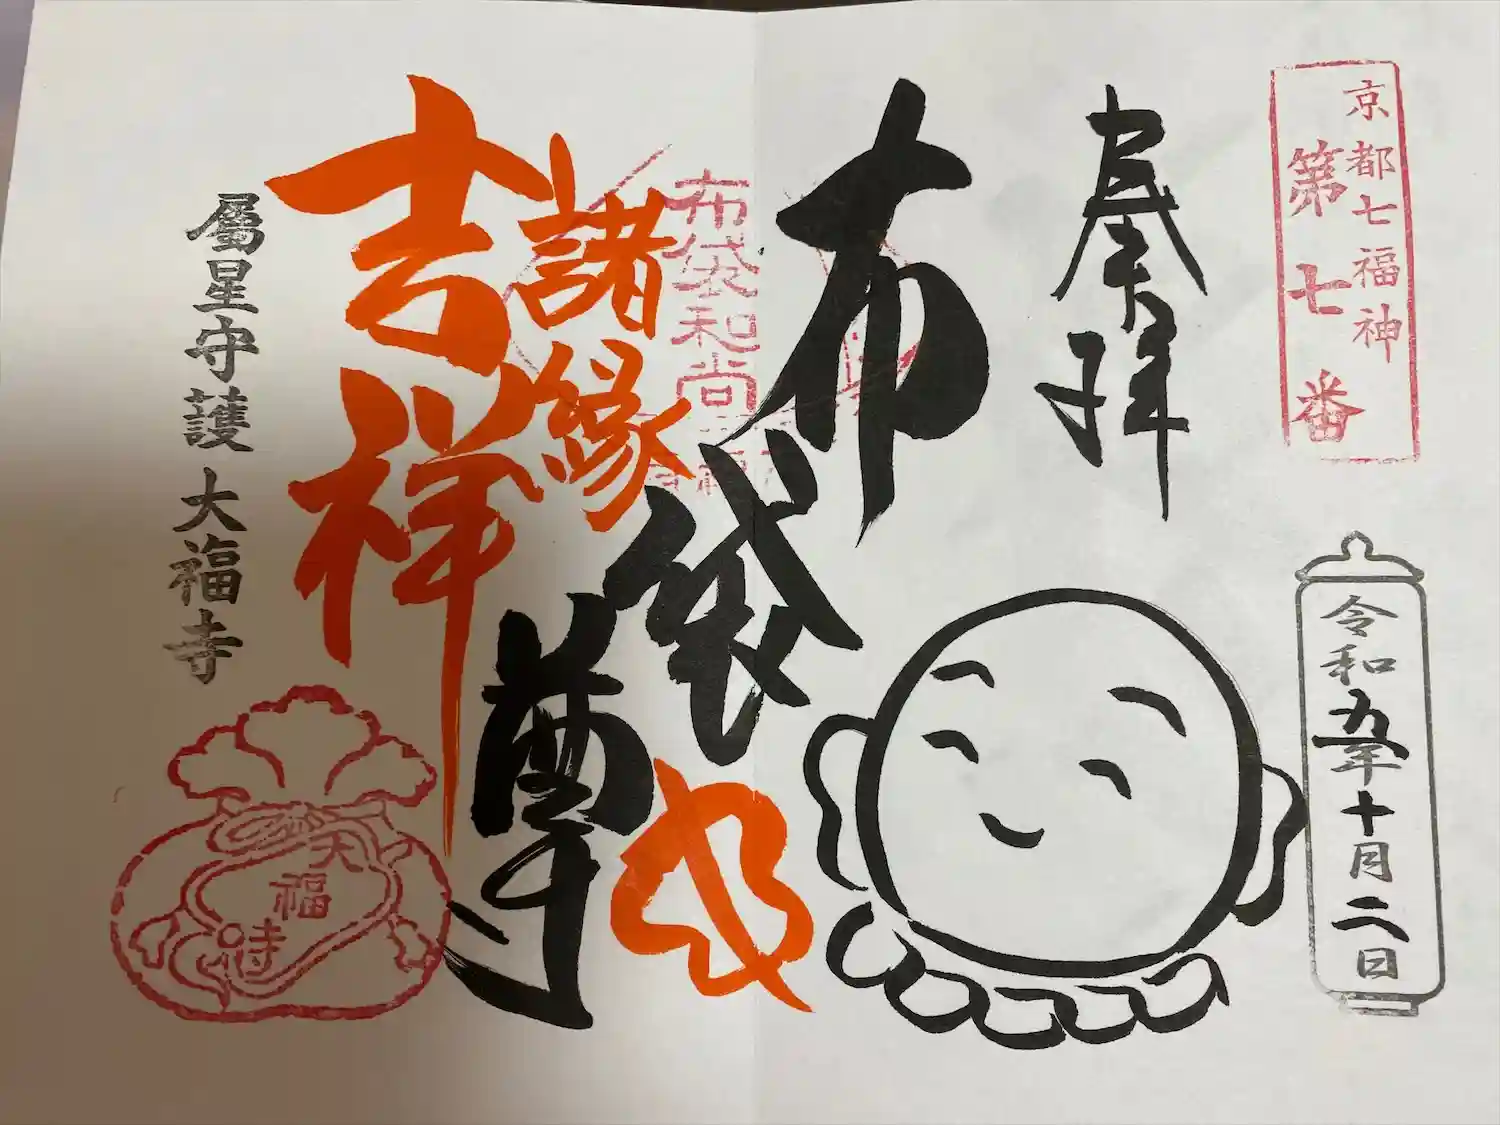 京都七福神
第七番
令和五年十月二日
奉拝
布袋尊
布袋和尚
諸縁
吉祥
屬星守護 大福寺
大福寺